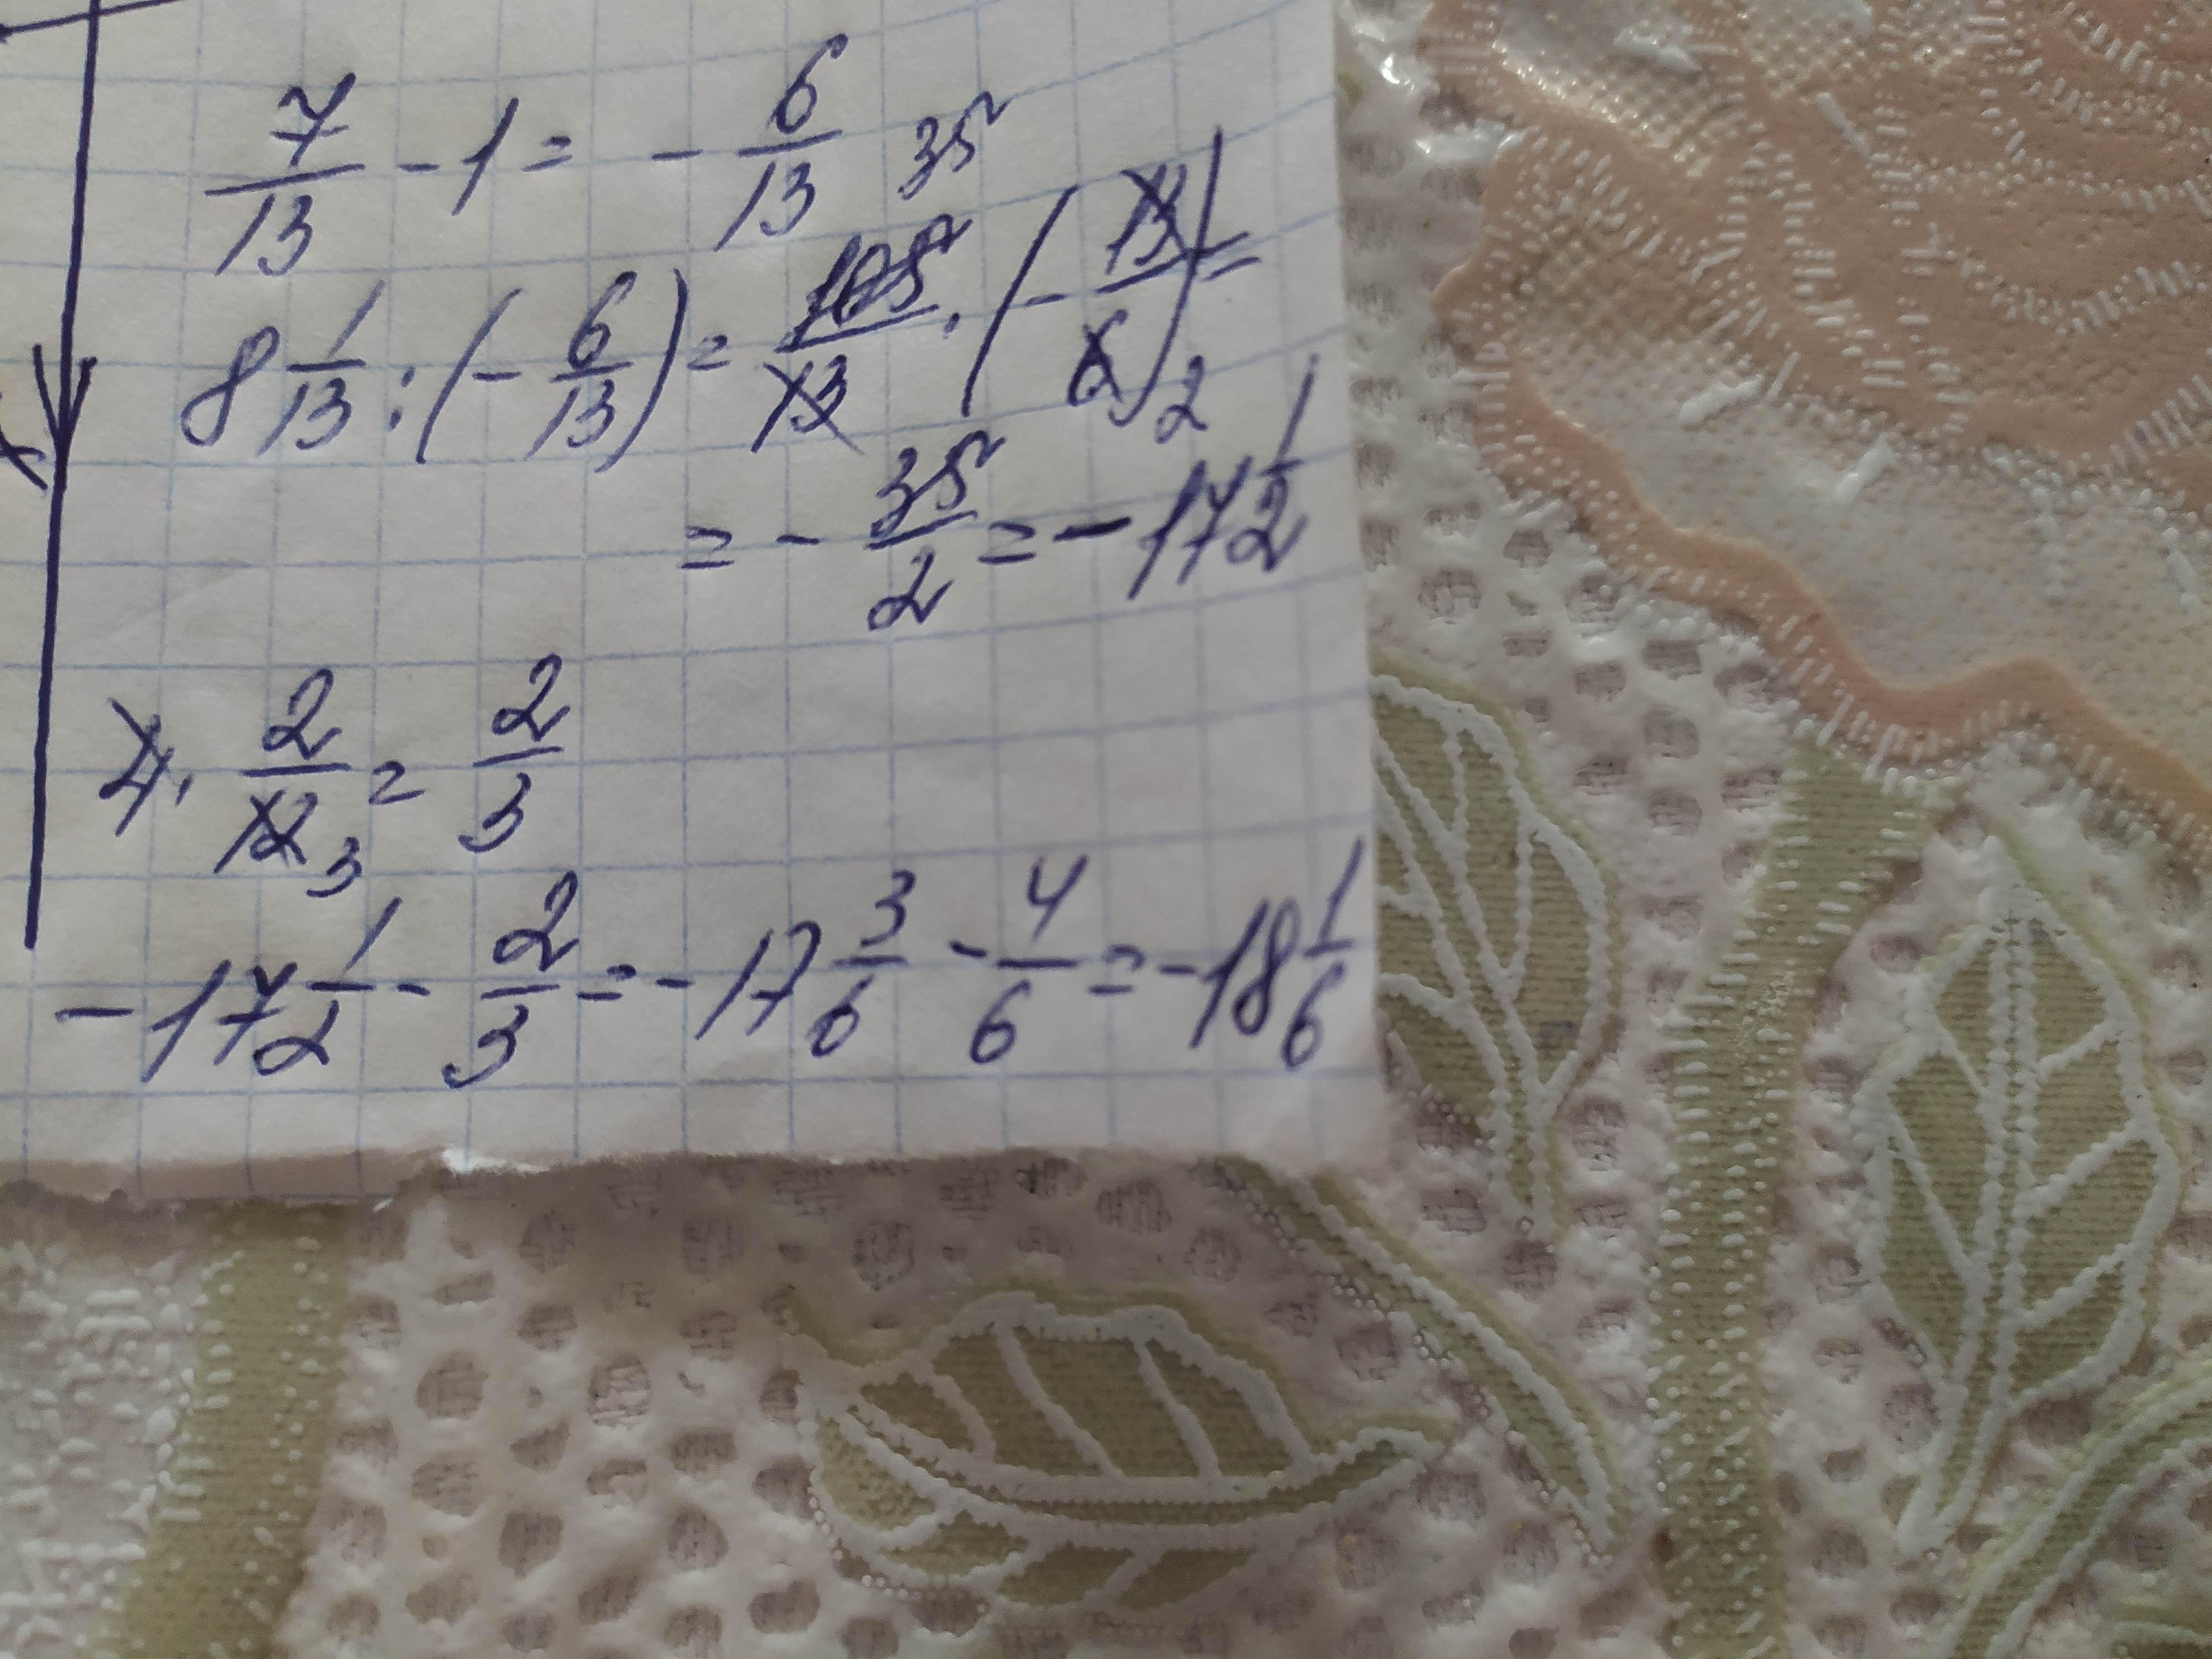 7/13 - 1 = - 6/13
8 1/13 : (- 6/13) = 105/13 · (- 13/6) = 35 2
= - 35/2 = - 17 1/2
4 · 2/12 = 2/3 3
- 17 1/2 - 2/3 = - 17 3/6 - 4/6 = - 18 1/6